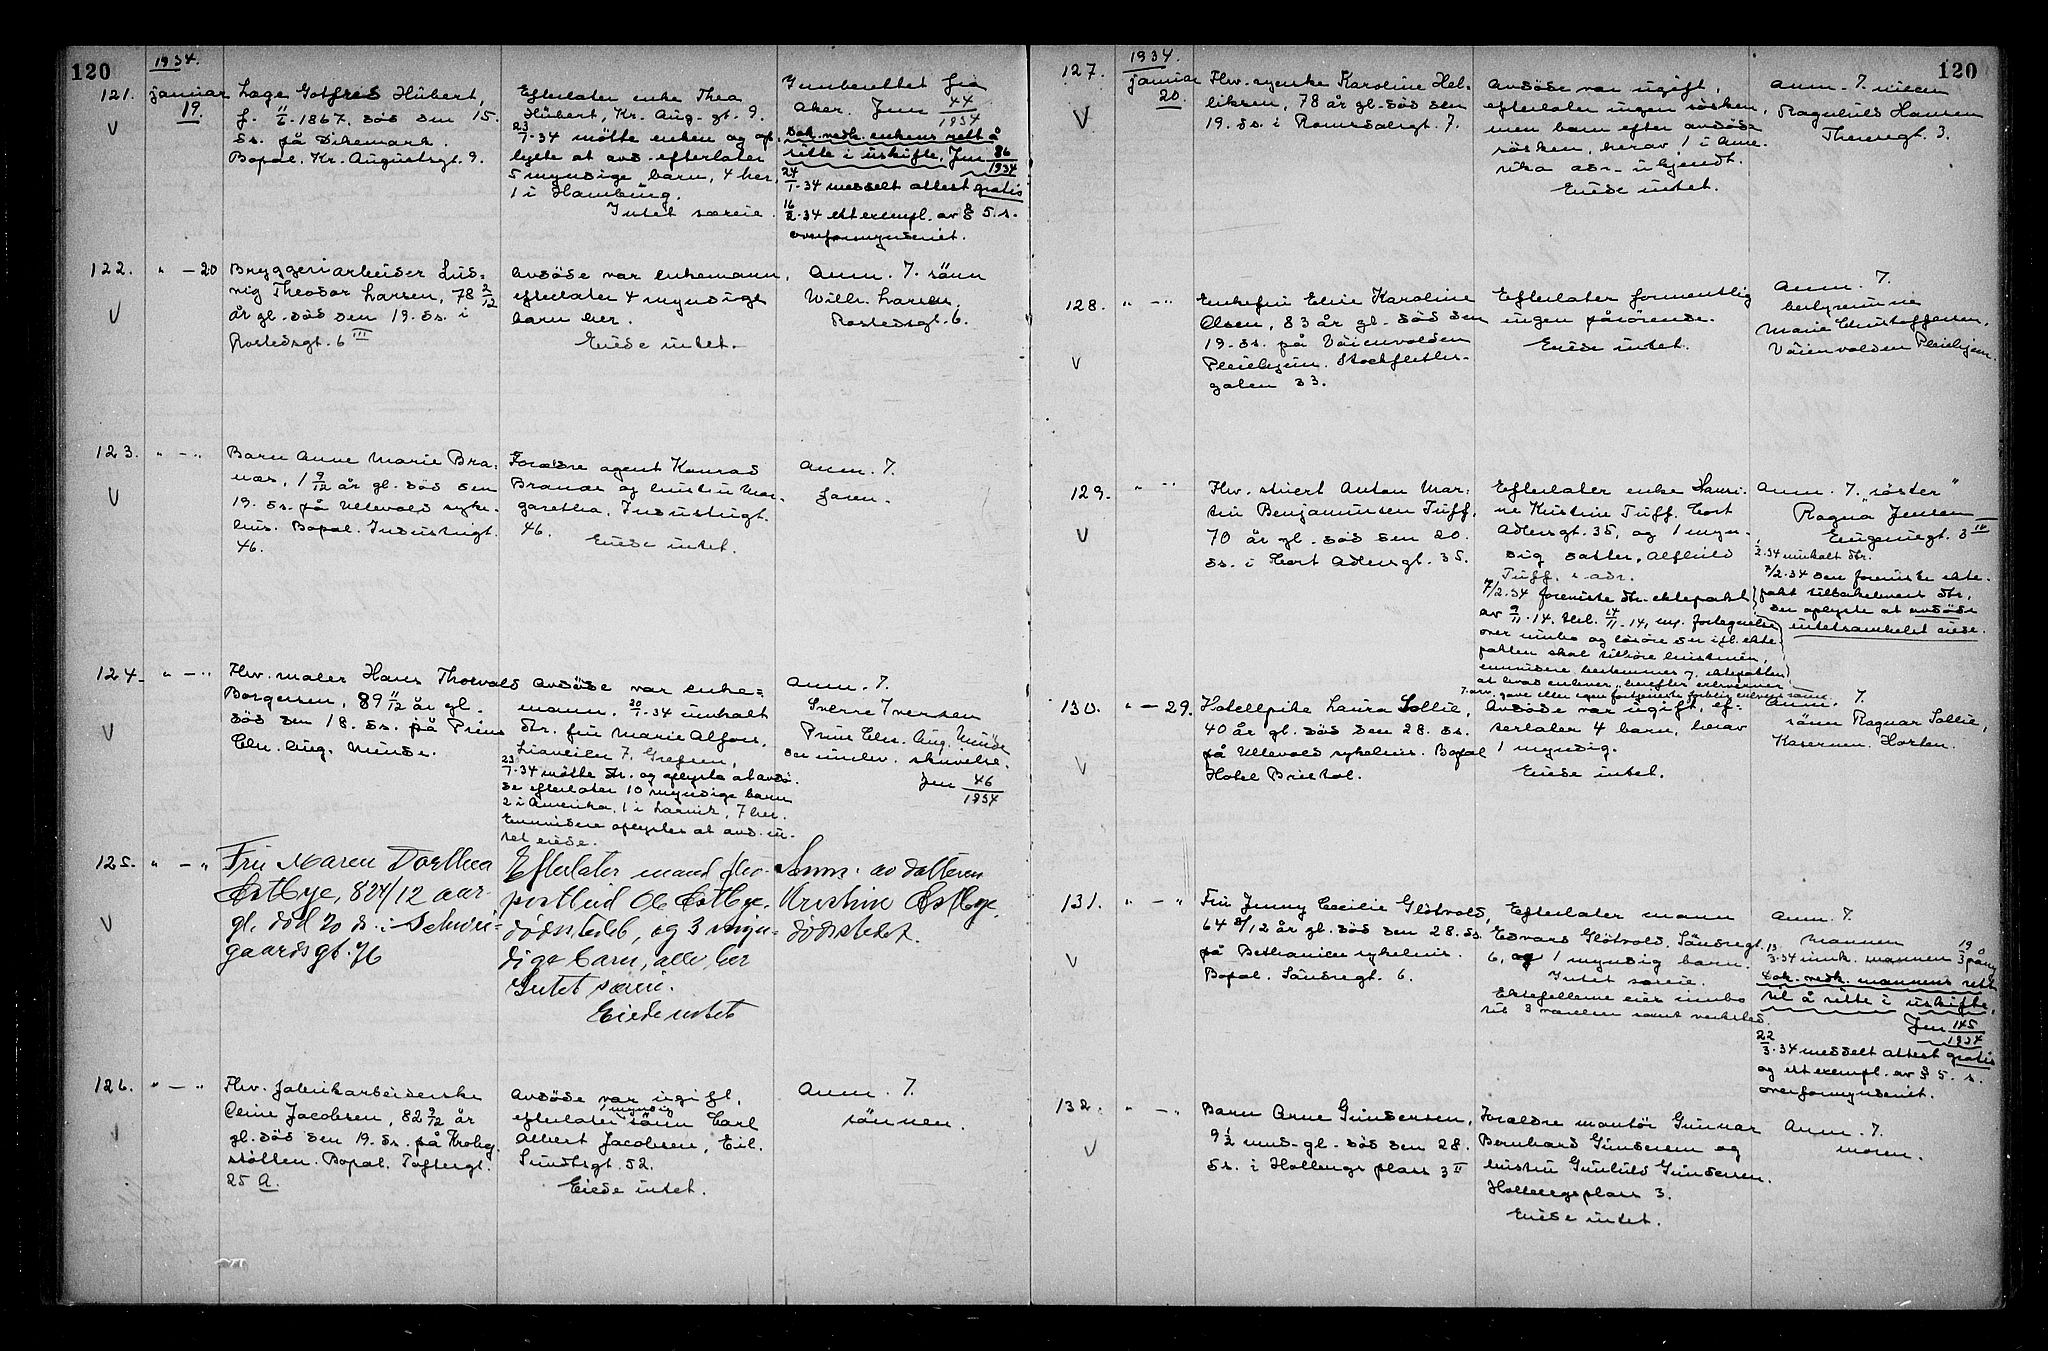 120
1934.
121.
januar
19.
Lage Gotfred Hübert,
f. 11/1-1867, död den 15.
ds. på Dikemark.
Bopæl. Kr. Augustsgt. 9.
Efterlater enke Thea
Hübert, Kr. Aug. gt. 9.
23/1-34 mötte enken og op-
lyste at avd. efterlater
5 myndige barn, 4 her,
1 i Hamburg.
Intet særeie.
Innberettet fra
Aker. Jnr 44/1934
Dok. vedk. enkens rett å
sitte i uskifte, Jnr 86/1934
24/1-34 meddelt attest gratis
16/2-34 ett exempl. av § 5. s.
overformynderiet.
122. " - 20
Bryggeriarbeider Lud-
vig Theodor Larsen, 78 2/12
år gl. död den 19. ds. i
Rostedsgt. 6 III
Avdöde var enkemann,
efterlater 4 myndige
barn her.
Eiede intet.
Anm. 7. sönn
Wilh. Larsen,
Rostedsgt. 6.
123. " - "
Barn Anne Marie Bra-
næs, 1 9/12 år gl. död den
19. ds. på Ullevold syke-
hus. Bopæl. Industrigt.
46.
Foreldre agent Konrad
Branæs og hustru Mar-
garetha, Industrigt.
46.
Eiede intet.
Anm. 7.
faren.
124. " - "
Fhv. maler Hans Thorvald
Borgersen, 89 11/12 år gl.
död den 18. ds. på Prins
Chr. Aug. Minde.
Avdöde var enke-
mann. 20/1-34 innkalt
dtr. fru Marie Alfon,
Lianveien 7, Grefsen,
23/1-34 mötte dtr. og oplyste at avdö-
de efterlater 10 myndige barn
2 i Amerika, 1 i Larvik, 7 her.
Ennvidere oplystes at avd. in-
tet eiede.
Anm. 7.
Sverre Iversen
Prins Chr. Aug. Minde
den underv. skrivelse.
Jnr 46/1934
125. " - "
Fru Maren Dorthea
Østbye, 82 4/12 aar
gl. död 20 ds. i Schwei-
gaardsgt. 76
Efterlater mand fhv.
postbud Ole Østbye,
dödstedet, og 3 myn-
dige barn, alle her
Intet særeie.
Eiede intet
Anm. av datteren
Kristine Østbye,
dödstedet.
126. " - "
Fhv. fabrikarbeiderske
Oline Jacobsen, 82 9/12 år
gl. död den 19. ds. på Krohg-
stötten. Bopæl. Toftesgt.
25 A.
Avdöde var ugift,
efterlater myndig sönn Carl
Albert Jacobsen, Eil.
Sundtsgt. 52.
Eiede intet.
Anm. 7.
sönnen.
120
1934.
127.
januar
20.
Fhv. syerske Karoline Hel-
liksen, 78 år gl. död den
19. ds. i Romsdalsgt. 7.
Avdöde var ugift,
efterlater ingen sösken,
men barn efter avdöde
sösken, herav 1 i Ame-
rika adr. ukjendt.
Eiede intet.
Anm. 7. niesen
Ragnhild Hansen
Theresgt. 3.
128. " - "
Enkefru Elise Karoline
Olsen, 83 år gl. död den
19. ds. på Vöienvolden
Pleiehjem. Stockfleths-
gaten 33.
Efterlater formentlig
ingen pårörende.
Eiede intet.
Anm. 7.
bestyrerinne
Marie Christoffersen,
Vöienvolden Pleiehjem.
129. " "
Fhv. stuert Anton Mar-
tin Benjaminsen Tuff,
70 år gl. död den 20.
ds. i Cort Adlersgt. 35.
Efterlater enke Hansi-
ne Kristine Tuff. Cort
Adlersgt. 35, og 1 myn-
dig datter, Alfhild
Tuff. s. adr.
7/2-34 foreviste dtr. ektepakt
av 9/11-14, thl. 14/11-14, m. fortegnelse
over innbo og lösöre der ifl. ekte-
pakten skal tilhöre hustruen,
ennvidere bestemmes i ektepakten
at hvad enhver herefter erhverver
7. arv, gave eller egen fortjeneste forblir enhvers særeie.
Anm. 7. „söster"
Ragna Jensen
Eugeniegt. 3 III
2-34 innkalt dtr.
7/2-34 den foreviste ekte-
pakt tilbakelevert dtr,
der oplyste at avdöde
intetsomhelst eiede.
130. " - 29.
Hotellpike Laura Sollie,
40 år gl. död den 28. ds.
på Ullevold sykehus. Bopæl
Hotel Bristol.
Avdöde var ugift, ef-
terlater 4 barn, herav
1 myndig.
Eiede intet.
Anm. 7.
sönn Ragnar Sollie,
Kasernen. Horten.
131. " - "
Fru Jenny Cecilie Glötvold,
64 8/12 år gl. död den 28. ds.
på Bethanien sykehus.
Bopæl. Sandregt. 6.
Efterlater mann
Edvard Glötvold, Sandregt
6, og 1 myndig barn.
Intet særeie.
Ektefellene eier innbo
til 3 værelser samt verksted.
Anm. 7.
mannen
13/3-34 innk. mannen 19/3 påny
Dok. vedk. mannens rett
til å sitte i uskifte,
Jnr 145/1934
22/3-34 meddelt attest gratis
og ett exempl. av § 5. s.
overformynderiet.
132. " - "
Barn Arne Gundersen,
9 1/2 mnd. gl. död den 28.
ds. i Hollengs plass 3 II
Foreldre montör Gunnar
Bernhard Gundersen og
hustru Gunhild Gundersen.
Hollengsplass 3.
Eiede intet.
Anm. 7.
moren.